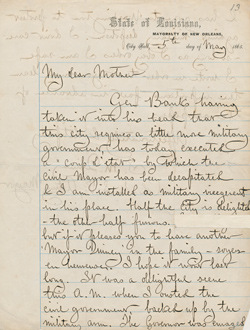 13
State of Louisiana,
MAYORALTY OF NEW ORLEANS,
City Hall, 5th day of May 186
My dear Mother
Gen Banks having
taken it into his head that
this city requires a little more military
government, has today executed
a "coup d'etat" by which the
civil Mayor has been decapitated
& I am installed as military
in his place. Half the city is delighted
- the other half furious.
but if it pleases you to have another
"Mayor Quincy" in the family -
en heureuse. I hope it wont last
long. It was a delightful scene
this A.M. when I ousted the
civil government - backed up by the
military arm. The Governor was